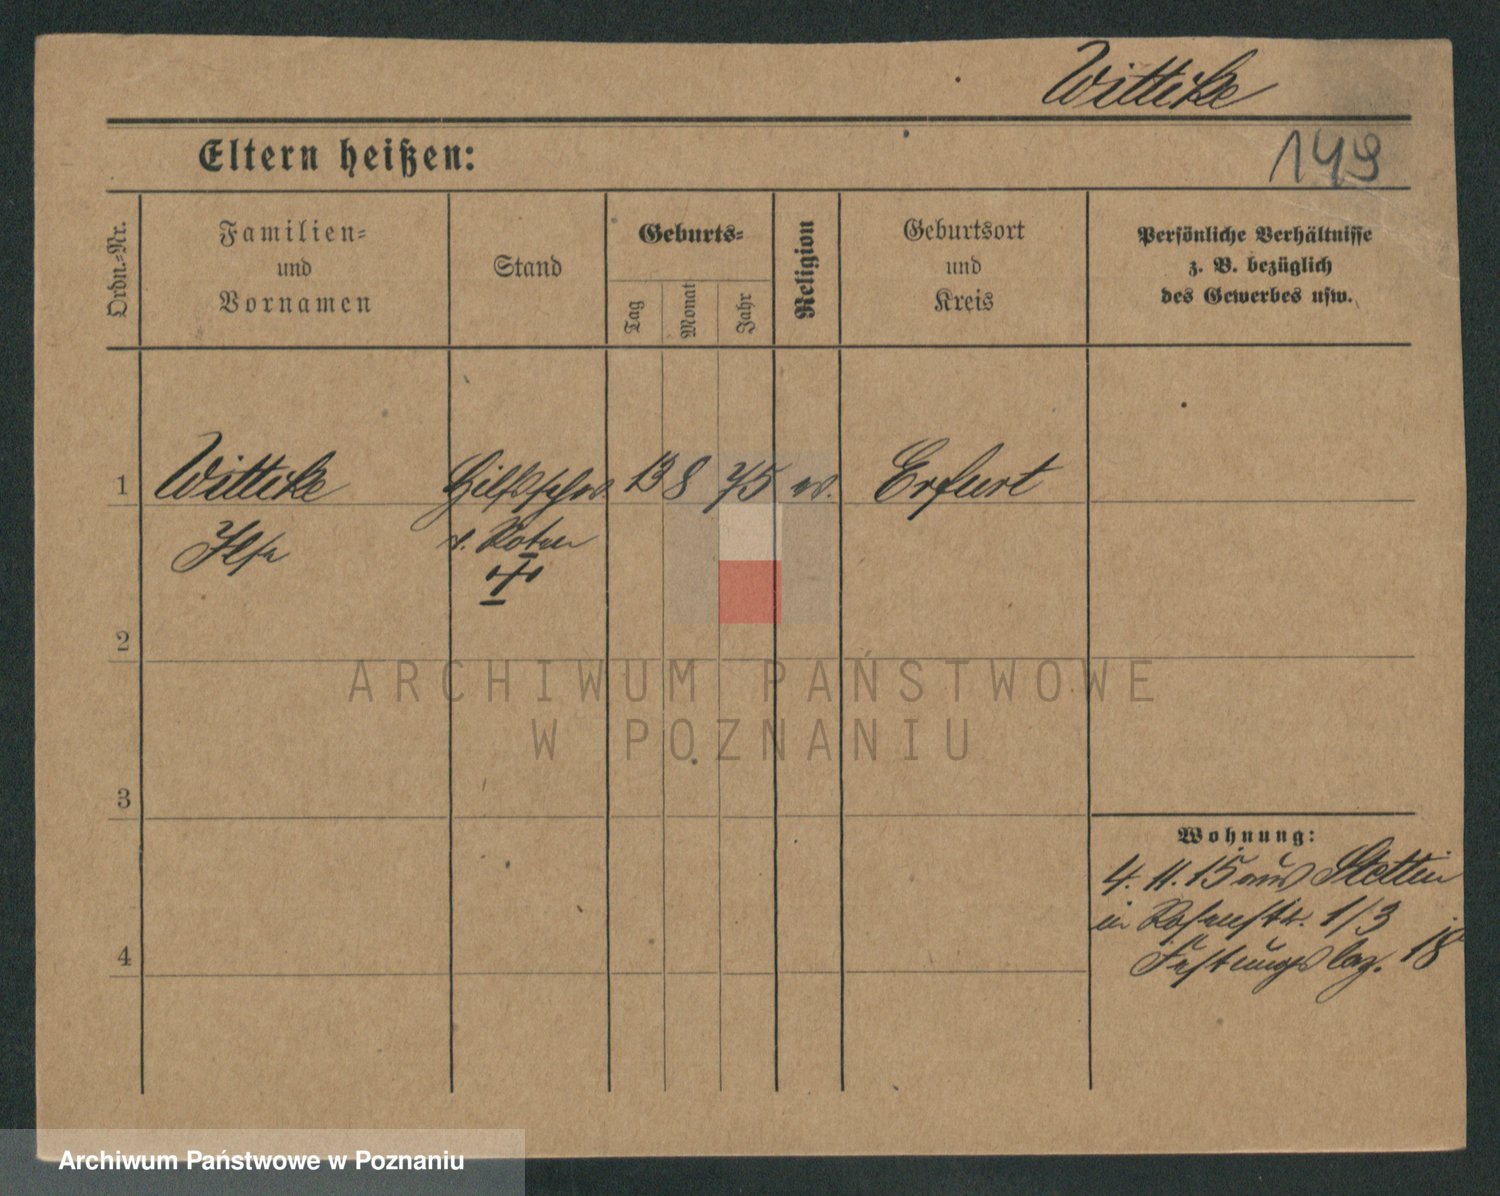 Wittike
149
Eltern heißen:
Ordn.-Nr.
Familien-
und
Vornamen
Stand
Geburts-
Tag
Monat
Jahr
Religion
Geburtsort
und
Kreis
Persönliche Verhältnisse
z. B. bezüglich
des Gewerbes usw.
1 Wittike Hilfsschw. 13 8 75 ev. Erfurt
Ilse v. Roten
2
3
4
Wohnung:
4. 11. 15 aus Stettin
in Rosenstr. 1/3
Festungslaz. 18
ARCHIWUM PAŃSTWOWE
W POZNANIU
Archiwum Państwowe w Poznaniu